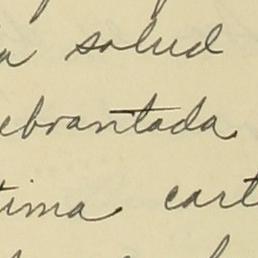 a salud
ebrantada
tima cart